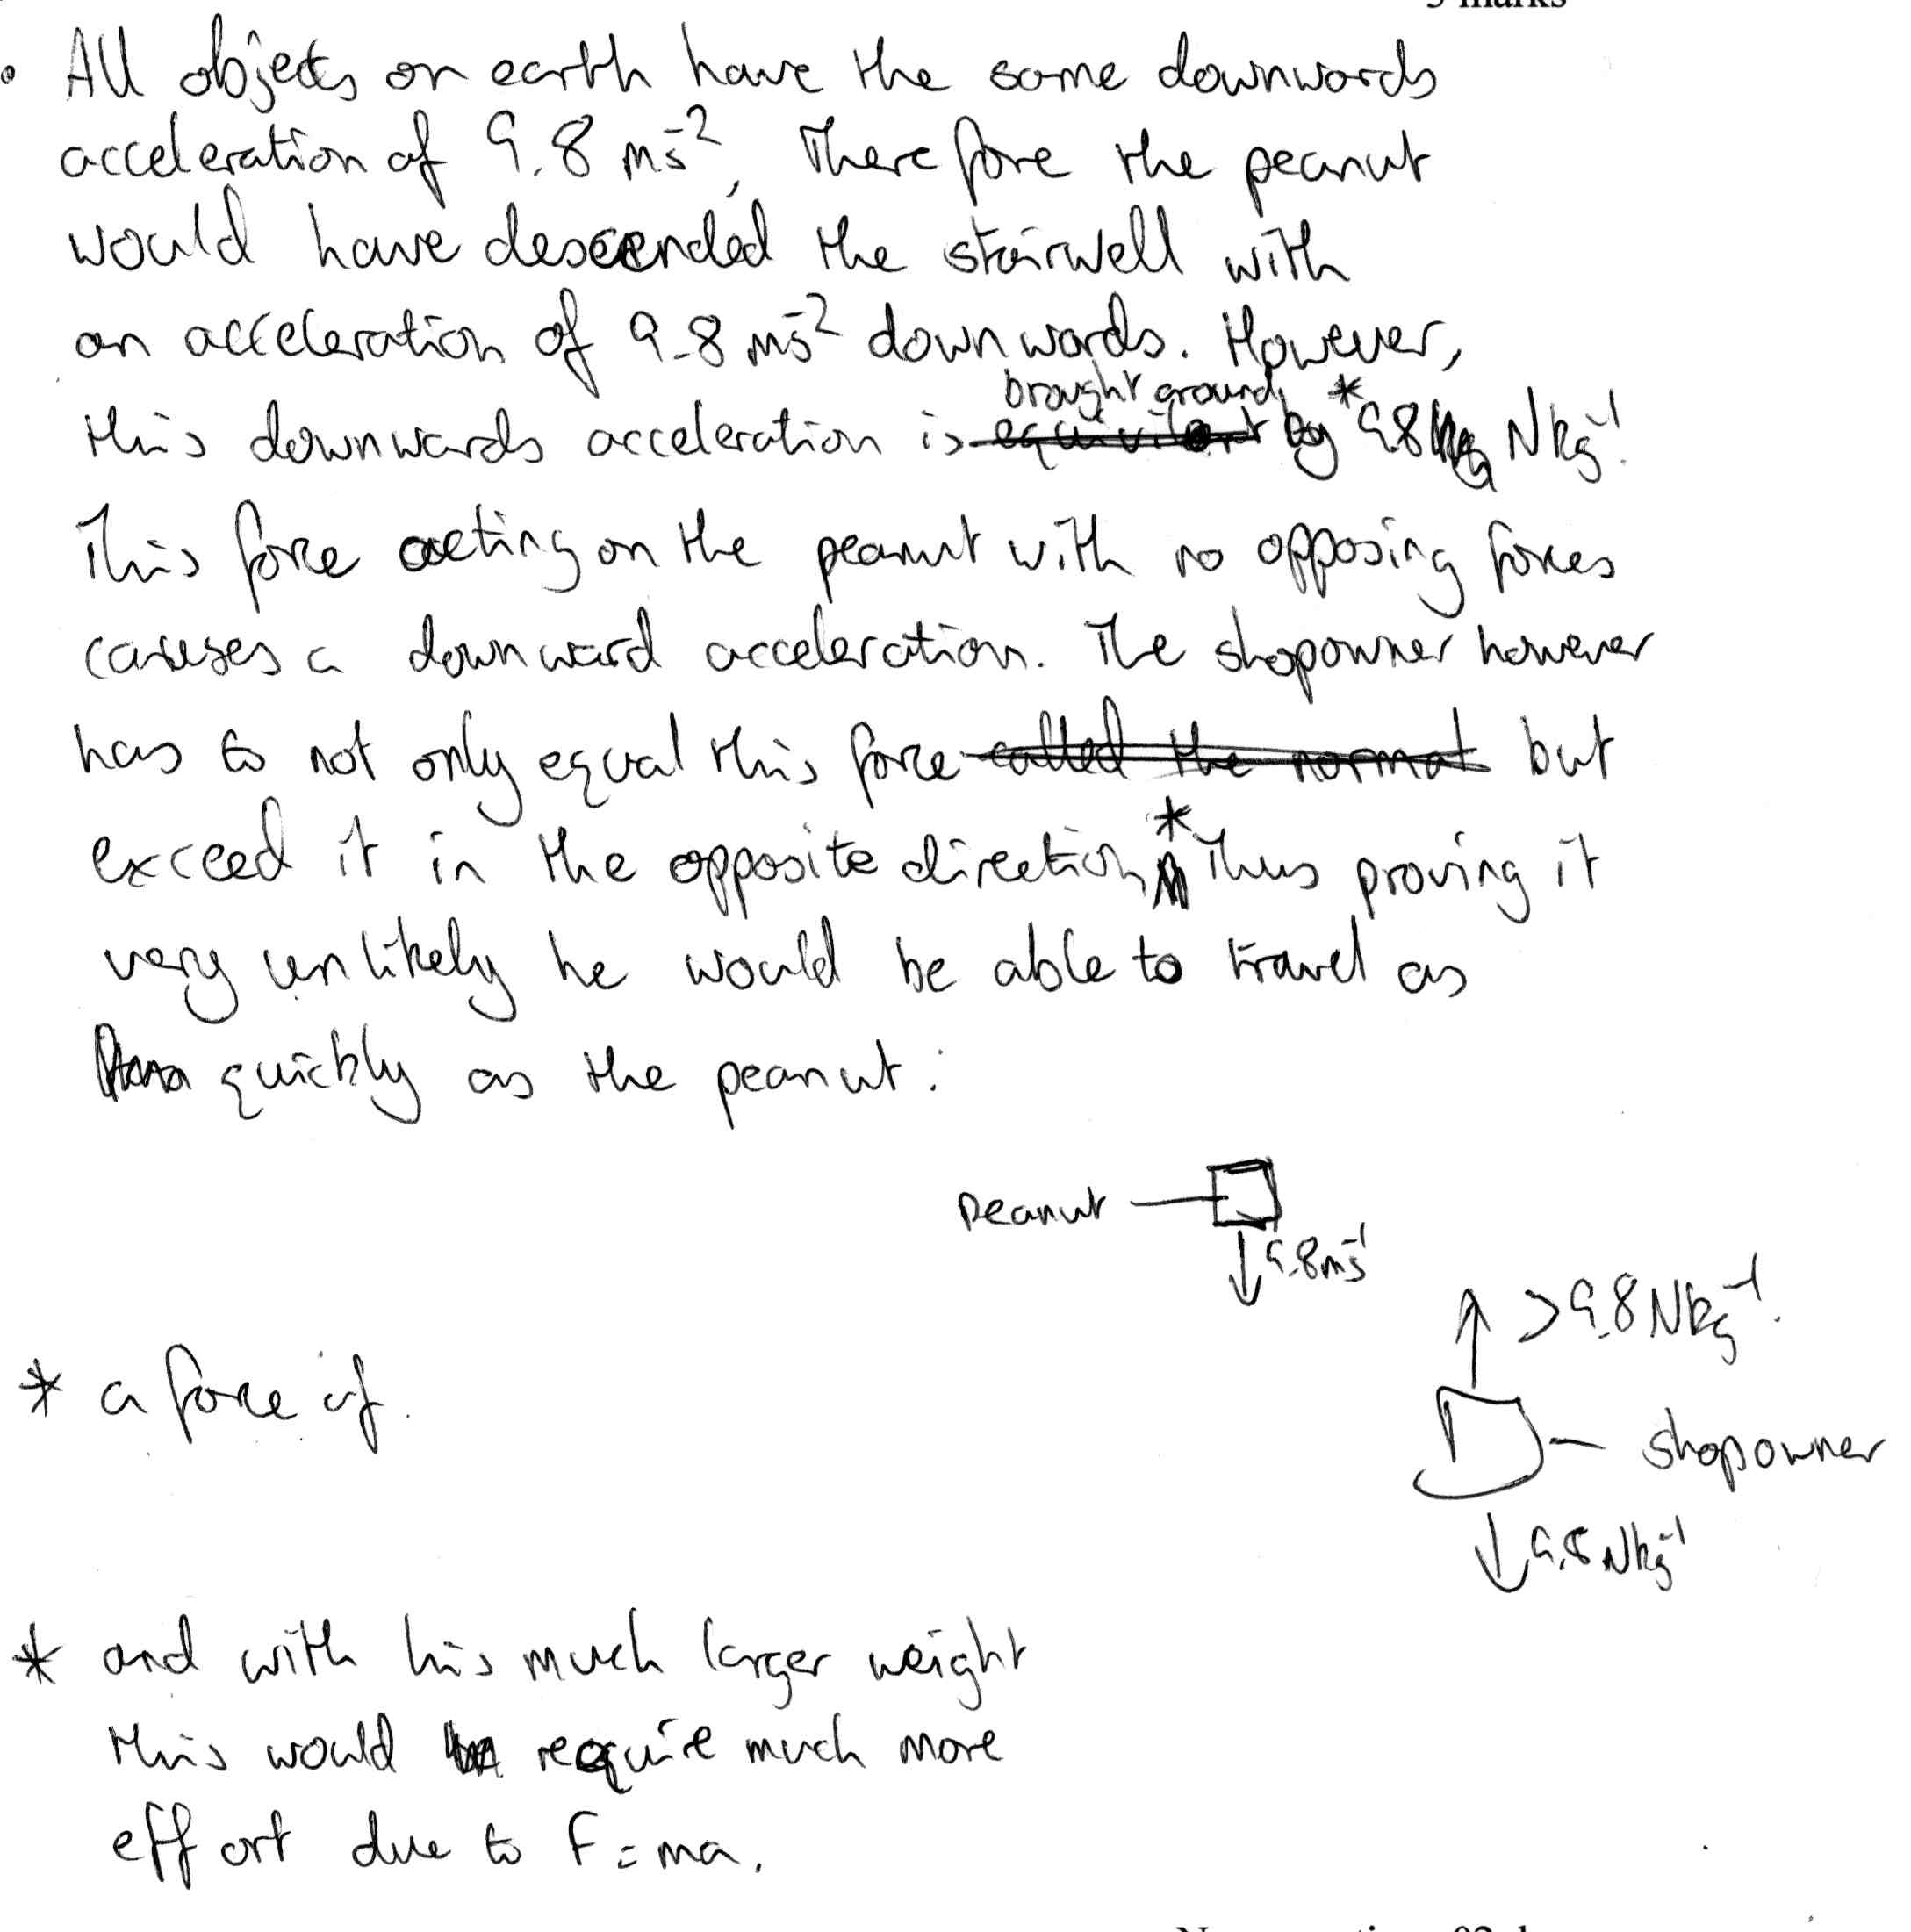 5 marks
• All objects on earth have the same downwards
acceleration of 9.8 ms⁻², Therefore the peanut
would have descended the stairwell with
an acceleration of 9.8 ms⁻² downwards. However,
brought around
this downwards acceleration is equivilent by * 9.8 Nkg⁻¹.
This force acting on the peanut with no opposing forces
causes a downward acceleration. The shopowner however
has to not only equal this force called the normal but
exceed it in the opposite direction * Thus proving it
very unlikely he would be able to travel as
quickly as the peanut.
Peanut
9.8ms⁻¹
>9.8Nkg⁻¹.
* a force of.
shopowner
9.8Nkg⁻¹
* and with his much larger weight
this would require much more
effort due to F=ma.